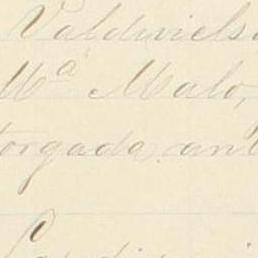 Valdivielso
Mª Malo,
torgada, ant